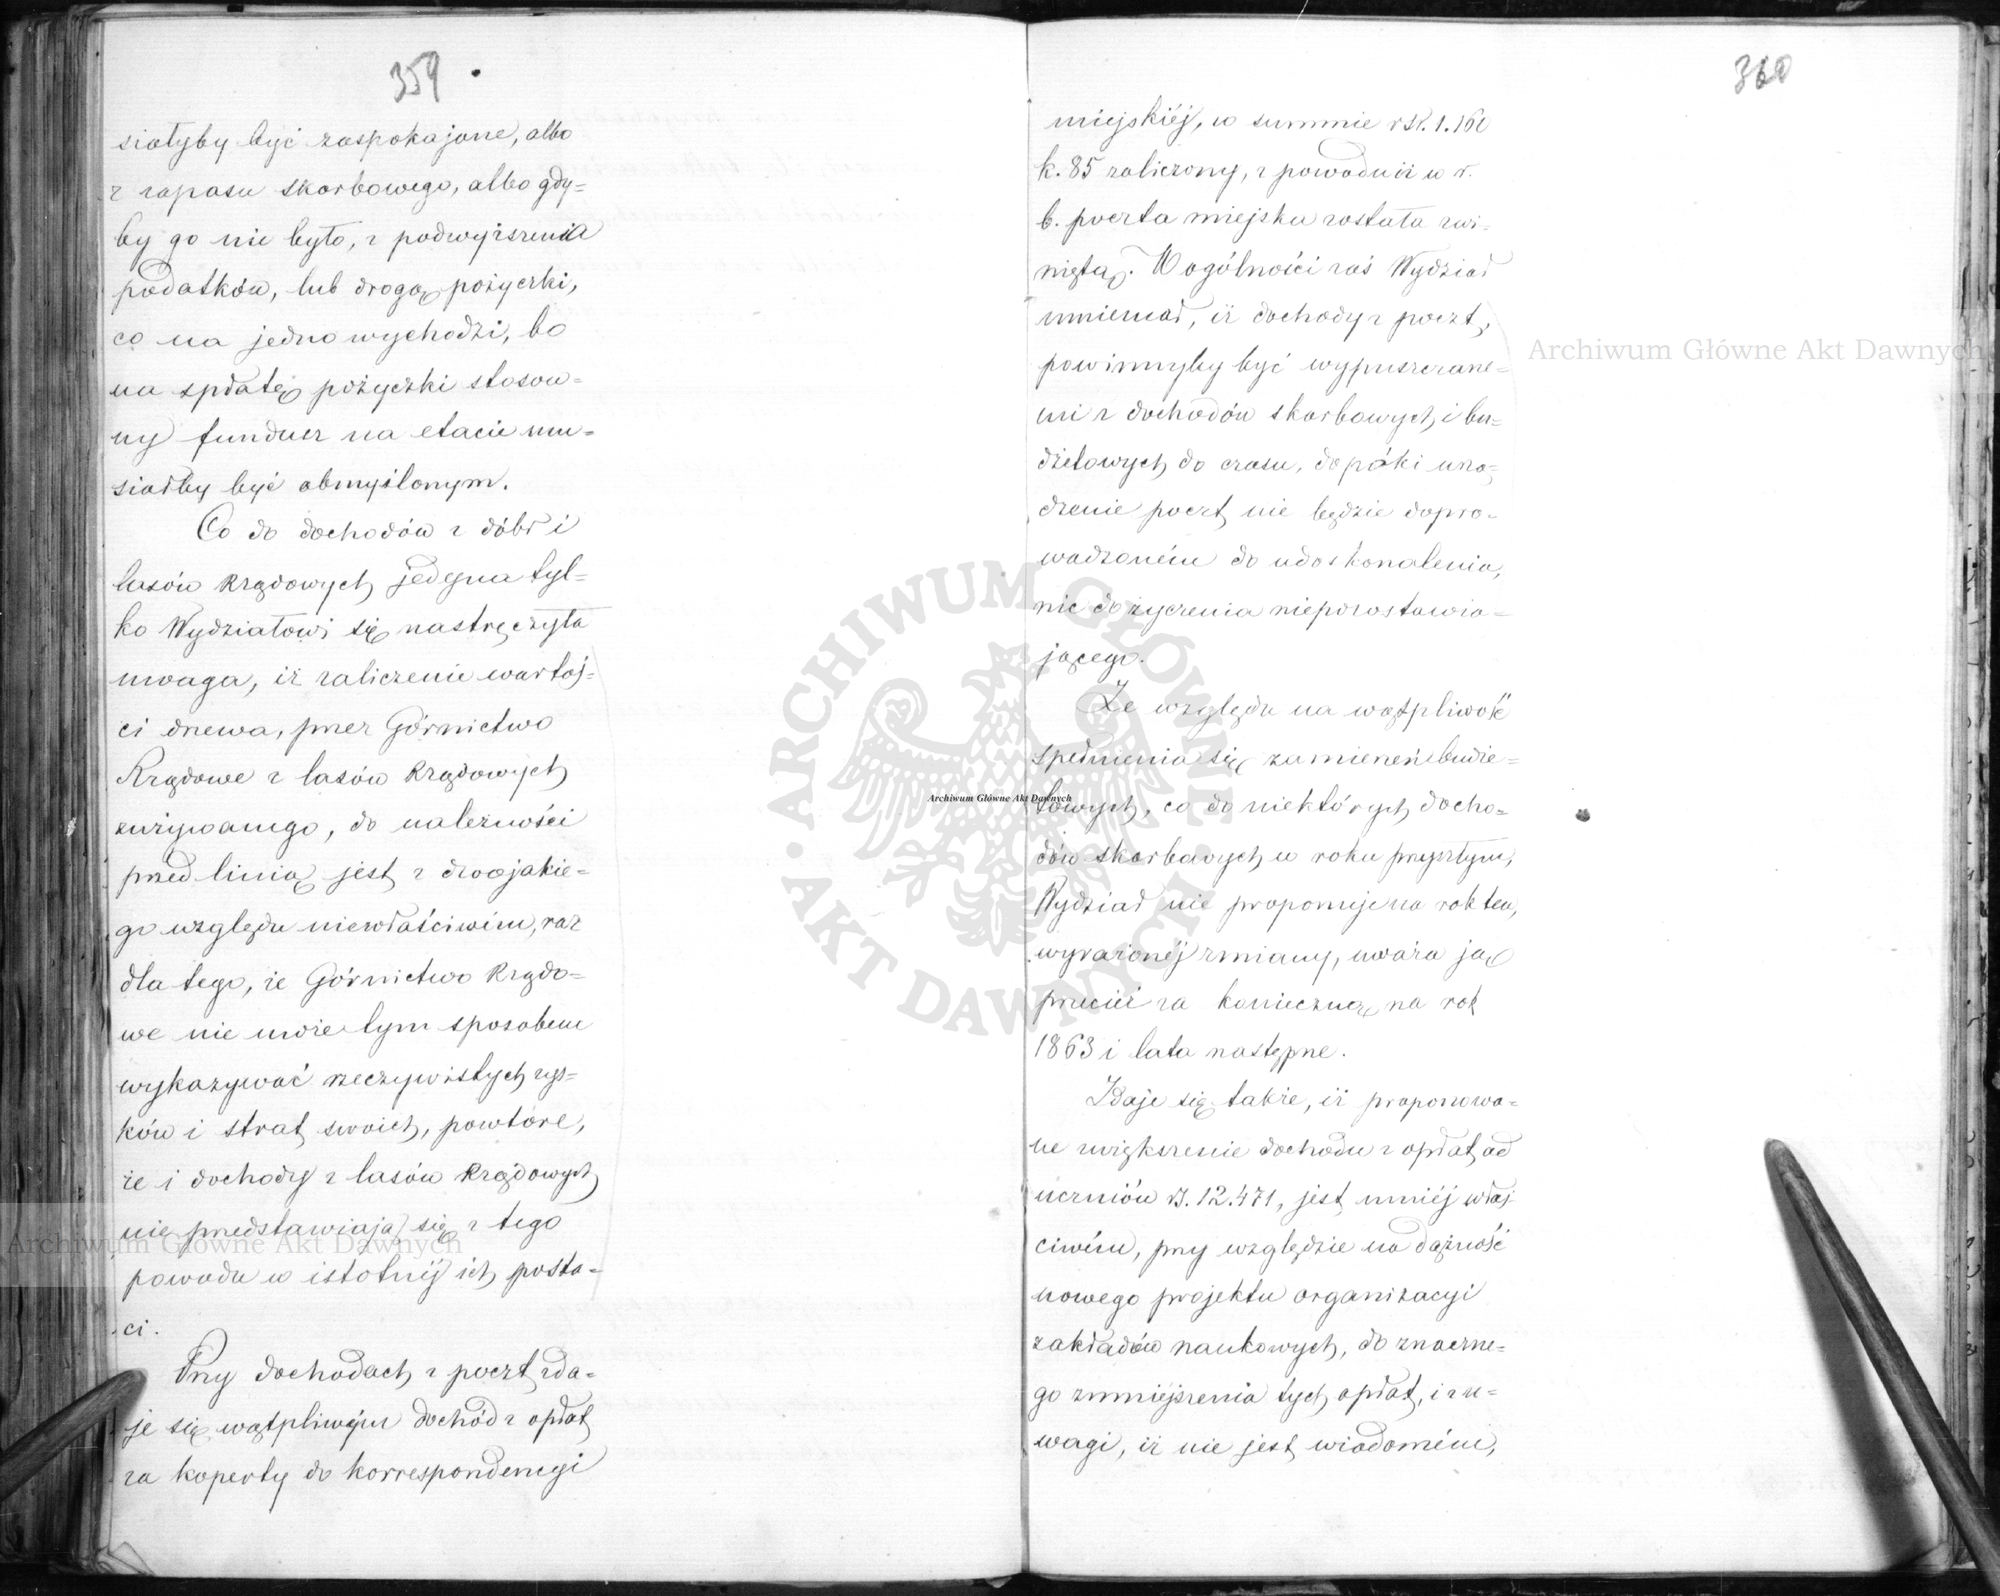 359
siałyby być zaspokajane, albo
z zapasu skarbowego, albo gdy=
by go nie było, z podwyższenia
podatków, lub drogą pożyczki,
co na jedno wychodzi, bo
na spłatę pożyczki stosow=
ny fundusz na etacie mu=
siałby być obmyślonym.
Co do dochodów z dóbr i
lasów Rządowych jedyna tyl=
ko Wydziałowi się nastręczyła
uwaga, iż zaliczenie wartoś=
ci drzewa, przez Górnictwo
Rządowe z lasów Rządowych
zużywanego, do należności
przed linią jest z dwojakie=
go względu niewłaściwém, raz
dla tego, że Górnictwo Rządo=
we nie może tym sposobem
wykazywać rzeczywistych zys=
ków i strat swoich, powtóre,
że i dochody z lasów Rządowych
nie przedstawiają się z tego
powodu w istotnéj ich posta=
ci.
Przy dochodach z poczt zda=
je się wątpliwym dochód z opłat
za koperty do korrespondencyi
360
miejskiéj, w summie rsr. 1.160
k. 85 zaliczony, z powodu iż w r.
b. poczta miejska została zwi=
niętą. W ogólności zaś Wydział
mniemał, iż dochody z poczt,
powinnyby być wypuszczane=
mi z dochodów skarbowych i bu=
dżetowych do czasu, dopóki urzą=
dzenie poczt nie będzie dopro=
wadzoném do udoskonalenia,
nic do życzenia niepozostawia=
jącego.
Ze względu na wątpliwość
spełnienia się zamierzeń budże=
towych, co do niektórych docho=
dów skarbowych w roku przyszłym,
Wydział nie proponuje na rok ten,
wyrażonéj zmiany, uważa ją
przecież za konieczną na rok
1863 i lata następne.
Zdaje się także, iż proponowa=
ne zwiększenie dochodu z opłat od
uczniów rs. 12.471, jest mniéj właś
ciwém, przy względzie na dążność
nowego projektu organizacyi
zakładów naukowych, do znaczne=
go zmniejszenia tych opłat, i z u=
wagi, iż nie jest wiadomém,
Archiwum Główne Akt Dawnych
Archiwum Główne Akt Dawnych
Archiwum Główne Akt Dawnych
ARCHIWUM GŁÓWNE AKT DAWNYCH